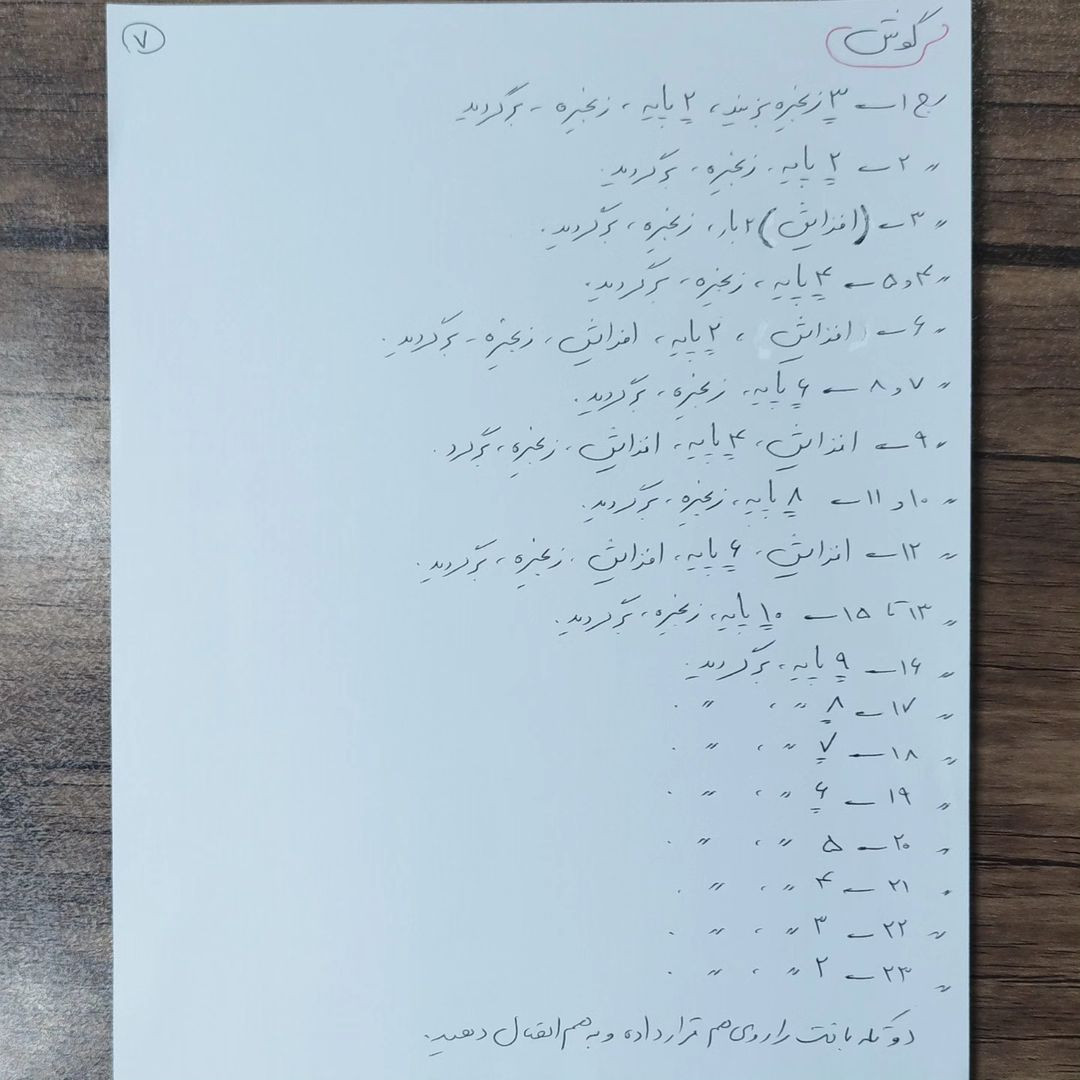 ۷
گوش
رج ۱← ۳ زنجیره بزنید، ۲ پایه، زنجیره، برگردید
〃 ۲← ۲ پایه، زنجیره، برگردید.
〃 ۳← (افزایش) ۲ بار، زنجیره، برگردید.
〃 ۴ و ۵← ۴ پایه، زنجیره، برگردید.
〃 ۶← افزایش، ۲ پایه، افزایش، زنجیره، برگردید.
〃 ۷ و ۸← ۶ پایه، زنجیره، برگردید.
〃 ۹← افزایش، ۴ پایه، افزایش، زنجیره، برگرد.
〃 ۱۰ و ۱۱← ۸ پایه، زنجیره، برگردید.
〃 ۱۲← افزایش، ۶ پایه، افزایش، زنجیره، برگردید.
〃 ۱۳ تا ۱۵← ۱۰ پایه، زنجیره، برگردید.
〃 ۱۶← ۹ پایه، برگردید.
〃 ۱۷← ۸ 〃، 〃.
〃 ۱۸← ۷ 〃، 〃.
〃 ۱۹← ۶ 〃، 〃.
〃 ۲۰← ۵ 〃، 〃.
〃 ۲۱← ۴ 〃، 〃.
〃 ۲۲← ۳ 〃، 〃.
〃 ۲۳← ۲ 〃، 〃.
دو تکه بافت را روی هم قرار داده و به هم اتصال دهید.